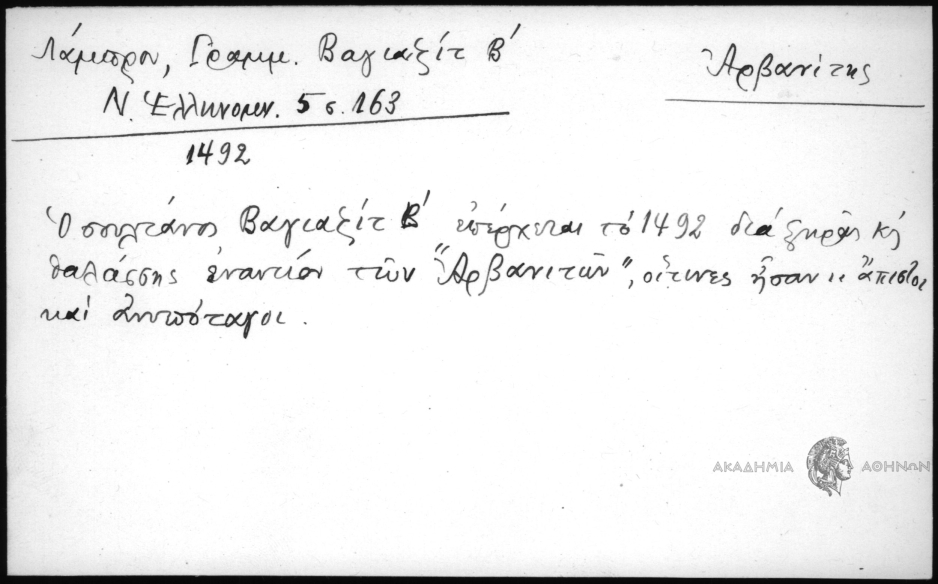 Λάμπρου, Γραμμ. Βαγιαζίτ Β΄
Ἀρβανίτης
Ν. Ἑλληνομν. 5 σ. 163
1492
Ὁ σουλτάνος Βαγιαζίτ Β΄ ἐπέρχεται τό 1492 διά ξηρᾶς κ
θαλάσσης ἐναντίον τῶν "Ἀρβανιτῶν", οἵτινες ἦσαν " ἄπιστοι
καί ἀνυπόταγοι.
ΑΚΑΔΗΜΙΑ ΑΘΗΝΩΝ